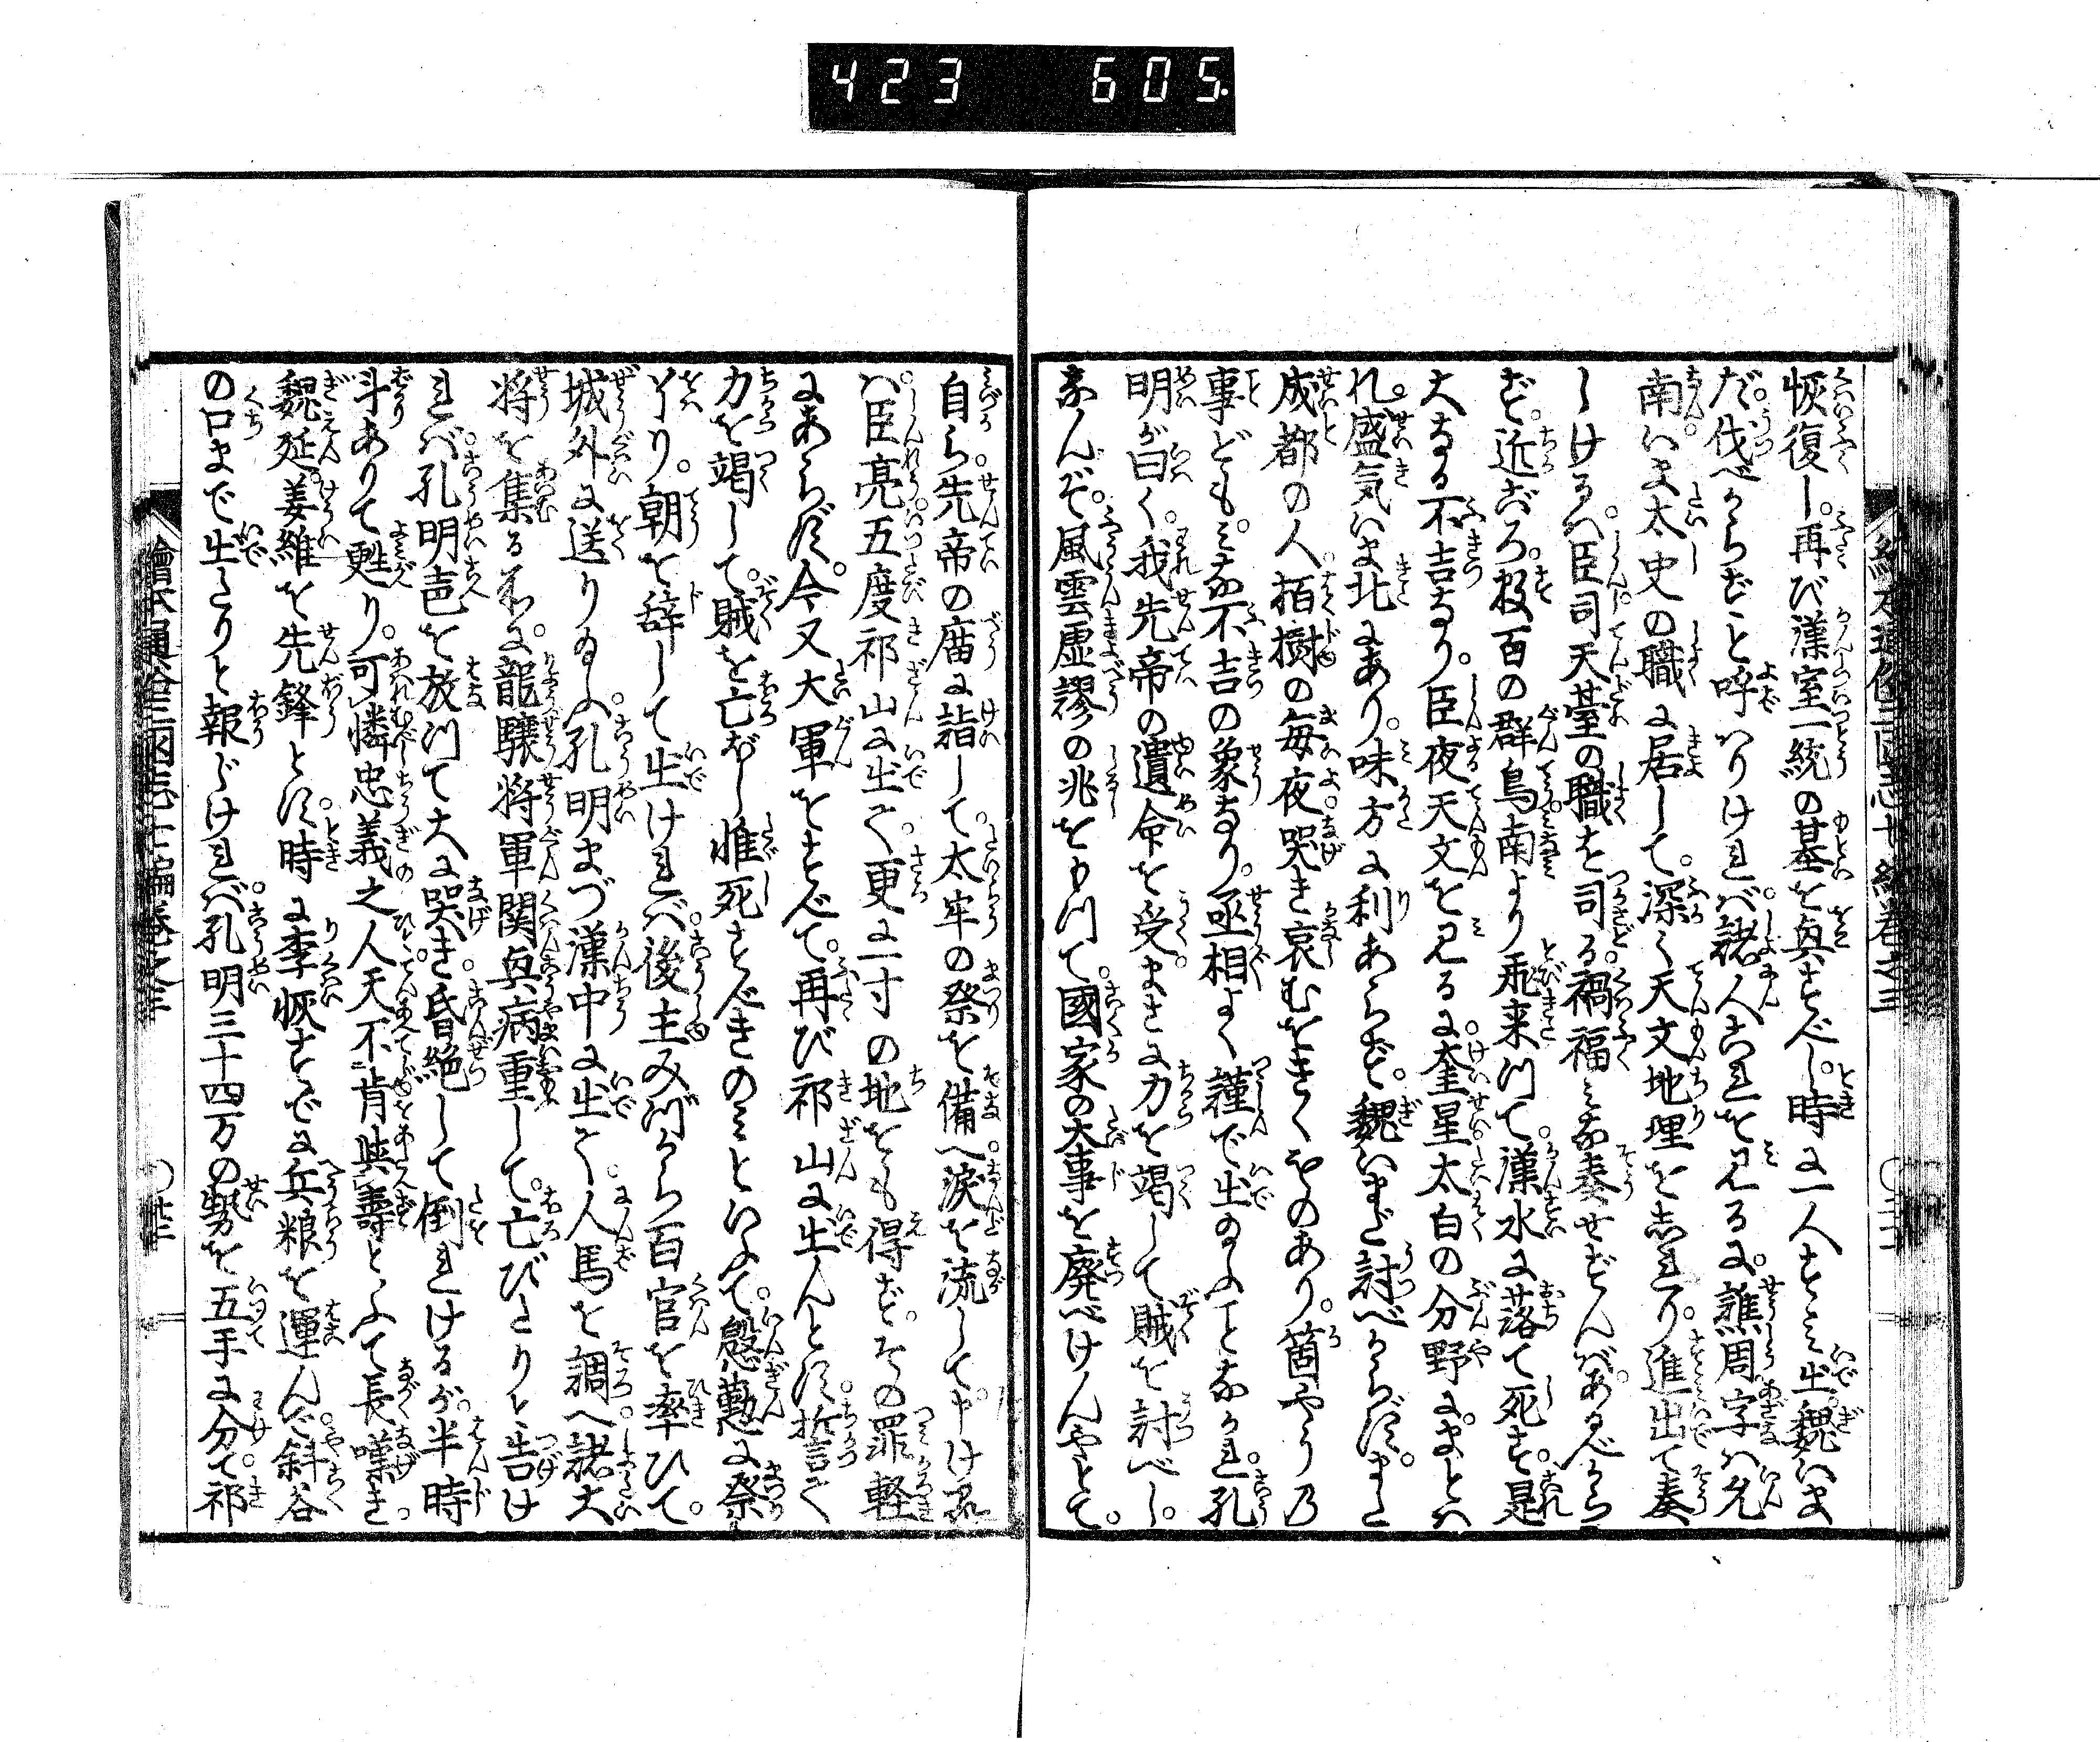 423 605
恢復し。再び漢室一統の基を興すべし。時に一人すゝみ出魏いま
だ。伐べからずと呼はりけれバ。諸人これを見るに。譙周字ハ允
南。いま太史の職に居して。深く天文地理をしれり。進出て奏
しけるハ。臣司天臺の職を司る。禍福みな奏せずんバあるべから
ず。近ごろ。数百の群鳥南より飛来つて。漢水に落て死す。是
大なる不吉なり。臣夜天文を見るに。奎星太白の分野にまとハ
れ。盛気いま北にあり。味方に利あらず。魏いまだ討べからず。また
成都の人。栢樹の毎夜哭き哀むをきくものあり。箇やうの
事ども。みな不吉の象なり。丞相よく謹で出給ふことなかれ。孔
明が曰く。我先帝の遺命を受。まさに力を竭して賊を討べし。
なんぞ。風雲虚謬の兆をもつて。國家の大事を廃べけんやとて。
自ら。先帝の廟に詣して。太牢の祭を備へ。涙を流して申けるハ
ハ。臣亮。五度祁山に出て。更に一寸の地をも得ず。その罪軽
にあらず。今又大軍をすべて。再び祁山に出んとす。誓て
力を竭して。賊を亡ぼし惟死すべきのミといふて。慇懃に祭
了り。朝を辞して出けれバ。後主みづから百官を率ひて。
城外に送り給ふ。孔明まづ漢中に出て。人馬を調へ。諸大
将を集る処に。龍驤将軍関興病重して。亡びたりと告け
れバ。孔明声を放つて大に哭き。昏絶して倒れけるが。半時
斗ありて甦り。可憐忠義之人天不肯與壽といふて長嘆き。
魏延。姜維を先鋒とす。時に李恢すでに兵粮を運んで。斜谷
の口まで出たりと報じけれバ。孔明三十四万の勢を五手に分て。祁
繪本通俗三国志七編巻之三